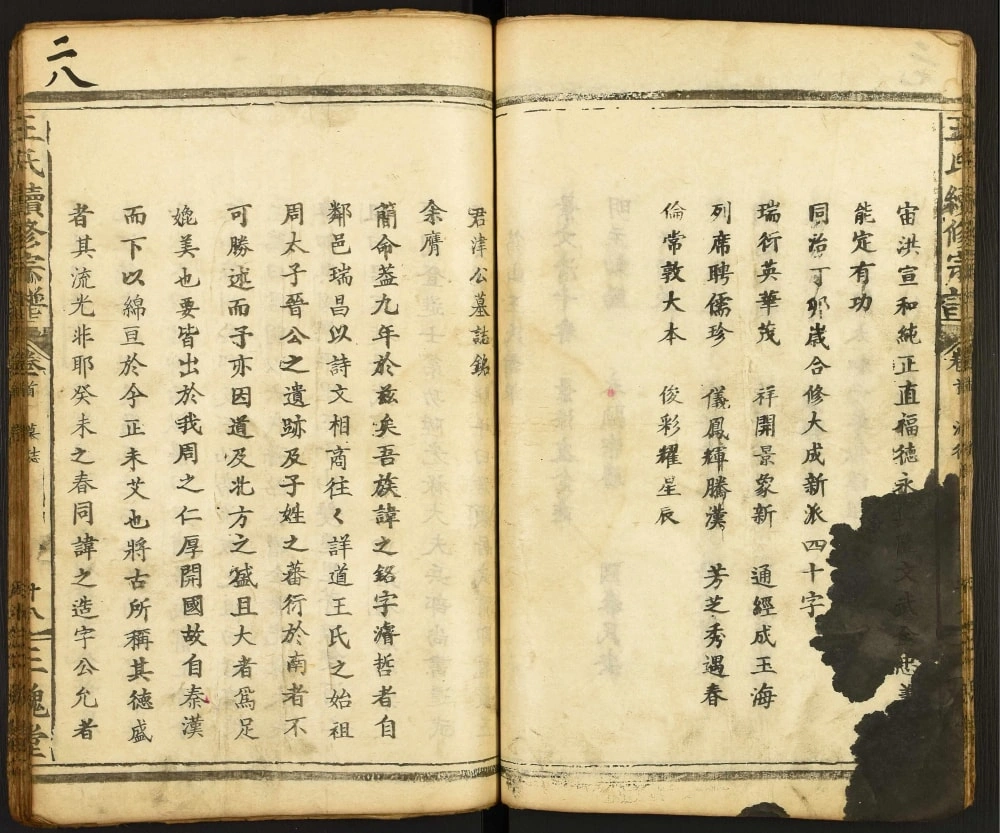 宙洪宣和純正直福德永文武全忠義
能定有功
同治丁卯嵗合修大成新派四十字
瑞衍英華茂 祥開景象新 通經成玉海
列席聘儒珍 儀鳳輝騰漢 芳芝秀遇春
倫常敦大本 俊彩耀星辰
二八
君津公墓誌銘
余膺
蕳命葢九年於兹矣吾族諱之銘字濬哲者自
鄰邑瑞昌以詩文相商往々詳道王氏之始祖
周太子晉公之遺跡及子姓之蕃衍於南者不
可勝述而子亦因道及北方之盛且大者爲足
媲美也要皆出於我周之仁厚開國故自秦漢
而下以綿亘於今正未艾也將古所稱其德盛
者其流光非耶癸未之春同諱之造字公允者
王氏續修宗譜 卷首 墓志 廿八 三槐堂